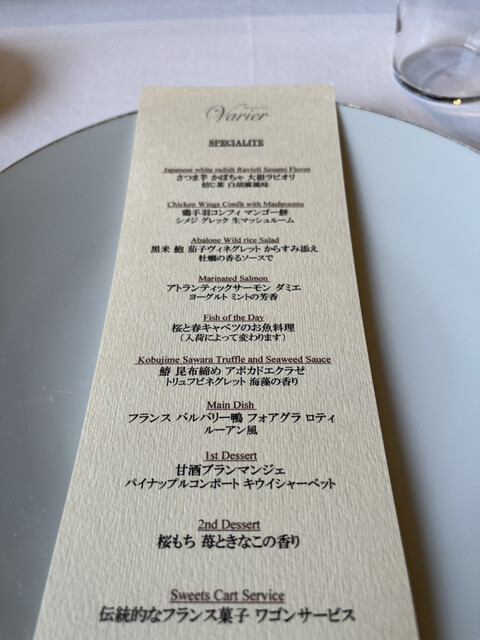 Varier
SPECIALITE
Japanese white radish Ravioli Sesami Flavor
さつま芋 かぼちゃ 大根ラビオリ
焙じ茶 白胡麻風味
Chicken Wings Confit with Mashrooms
鶏手羽コンフィ マンゴー餅
シメジ グレック 生マッシュルーム
Abalone Wild rice Salad
黒米 鮑 茄子ヴィネグレット からすみ添え
牡蠣の香るソースで
Marinated Salmon
アトランティックサーモン ダミエ
ヨーグルト ミントの芳香
Fish of the Day
桜と春キャベツのお魚料理
（入荷によって変わります）
Kobujime Sawara Truffle and Seaweed Sauce
鰆 昆布締め アボカドエクラゼ
トリュフビネグレット 海藻の香り
Main Dish
フランス バルバリー鴨 フォアグラ ロティ
ルーアン風
1st Dessert
甘酒ブランマンジェ
パイナップルコンポート キウイシャーベット
2nd Dessert
桜もち 苺ときなこの香り
Sweets Cart Service
伝統的なフランス菓子 ワゴンサービス